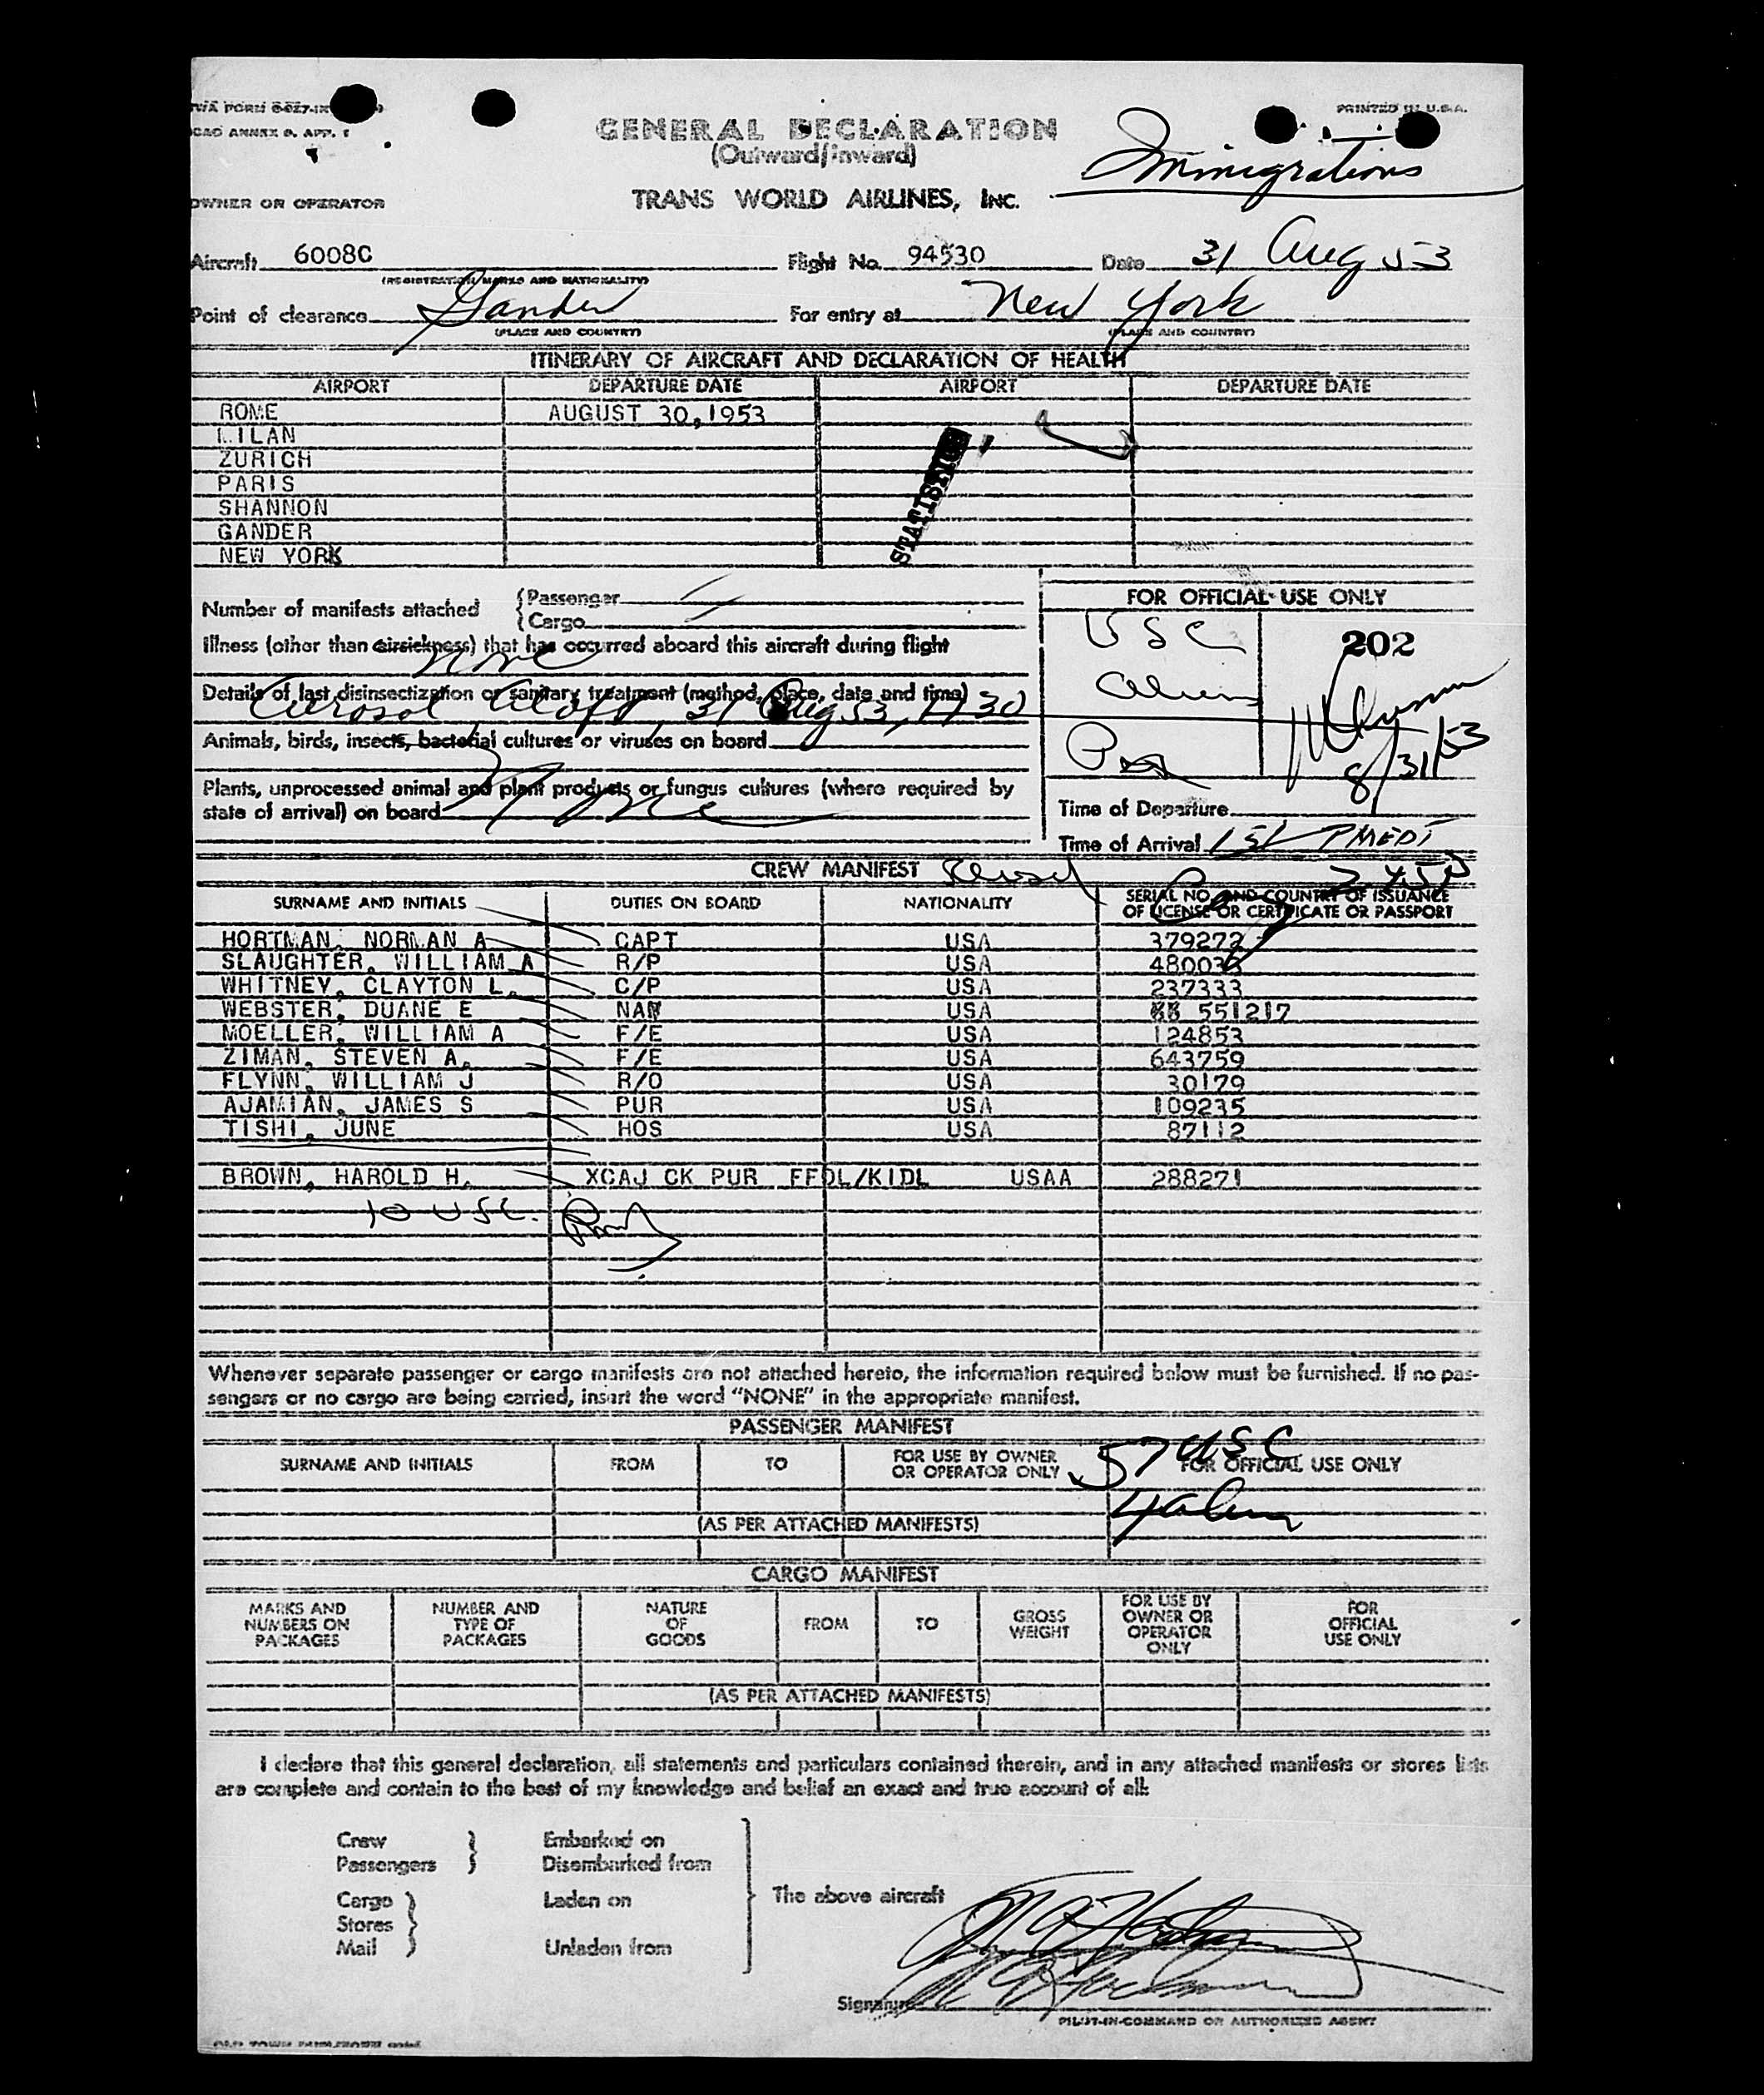 TWA FORM
ICAO ANNEX 9, APP. 1
PRINTED IN U.S.A.
GENERAL DECLARATION
(Outward/inward)
Immigrations
OWNER OR OPERATOR
TRANS WORLD AIRLINES, INC.
Aircraft 6008C Flight No. 94530 Date 31 Aug 53
(REGISTRATION MARKS AND NATIONALITY)
Point of clearance Gander For entry at New York
(PLACE AND COUNTRY) (PLACE AND COUNTRY)
ITINERARY OF AIRCRAFT AND DECLARATION OF HEALTH
AIRPORT DEPARTURE DATE AIRPORT DEPARTURE DATE
ROME AUGUST 30,1953
MILAN
ZURICH
PARIS
SHANNON
GANDER
NEW YORK
Number of manifests attached { Passenger
{ Cargo
FOR OFFICIAL USE ONLY
USC 202
Illness (other than airsickness) that has occurred aboard this aircraft during flight
none
Details of last disinsectization or sanitary treatment (method, place, date and time)
Aerosol Aloft, 31 Aug 53, 1730
8/31/53
Animals, birds, insects, bacterial cultures or viruses on board
Plants, unprocessed animal and plant products or fungus cultures (where required by
state of arrival) on board None
Time of Departure
Time of Arrival 151 PMEDT
CREW MANIFEST
SURNAME AND INITIALS DUTIES ON BOARD NATIONALITY SERIAL NO. AND COUNTRY OF ISSUANCE
OF LICENSE OR CERTIFICATE OR PASSPORT
HORTMAN, NORMAN A CAPT USA 379272
SLAUGHTER, WILLIAM A R/P USA
WHITNEY, CLAYTON L. C/P USA 237333
WEBSTER, DUANE E NAV USA 551217
MOELLER, WILLIAM A F/E USA 124853
ZIMAN, STEVEN A. F/E USA 643759
FLYNN, WILLIAM J R/O USA 30179
AJAMIAN, JAMES S PUR USA 109235
TISHI, JUNE HOS USA 87112
BROWN, HAROLD H. XCAJ CK PUR FFDL/KIDL USAA 288271
10 USC.
Whenever separate passenger or cargo manifests are not attached hereto, the information required below must be furnished. If no pas-
sengers or no cargo are being carried, insert the word "NONE" in the appropriate manifest.
PASSENGER MANIFEST
57 USC
SURNAME AND INITIALS FROM TO FOR USE BY OWNER
OR OPERATOR ONLY FOR OFFICIAL USE ONLY
4 alien
(AS PER ATTACHED MANIFESTS)
CARGO MANIFEST
MARKS AND
NUMBERS ON
PACKAGES
NUMBER AND
TYPE OF
PACKAGES
NATURE
OF
GOODS
FROM
TO
GROSS
WEIGHT
FOR USE BY
OWNER OR
OPERATOR
ONLY
FOR
OFFICIAL
USE ONLY
(AS PER ATTACHED MANIFESTS)
I declare that this general declaration, all statements and particulars contained therein, and in any attached manifests or stores lists
are complete and contain to the best of my knowledge and belief an exact and true account of all:
Crew } Embarked on
Passengers } Disembarked from
Cargo } Laden on The above aircraft
Stores }
Mail } Unladen from
Signature
PILOT-IN-COMMAND OR AUTHORIZED AGENT